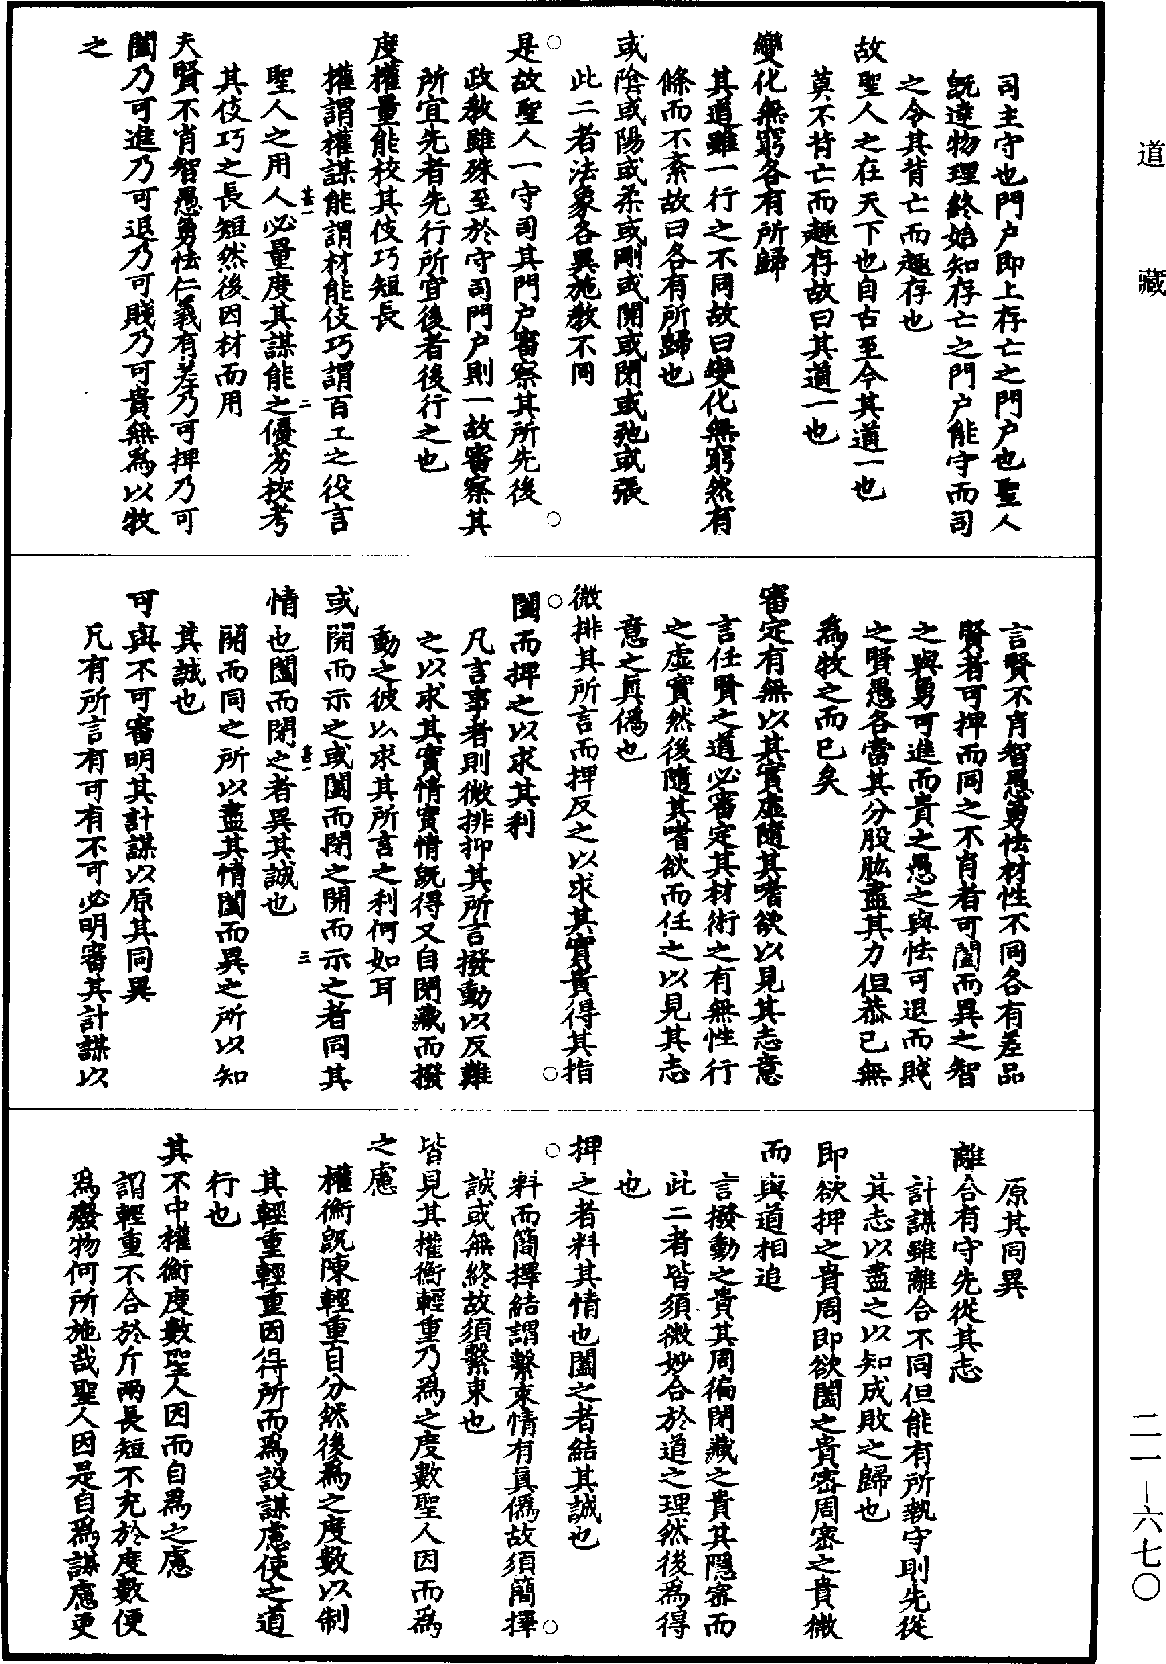 道藏
司主守也門户即上存亡之門户也聖人
旣達物理終始知存亡之門户能守而司
之令其背亡而趣存也
故聖人之在天下也自古至今其道一也
莫不背亡而趣存故曰其道一也
變化無窮各有所歸
其道雖一行之不同故曰變化無窮然有
條而不紊故曰各有所歸也
或陰或陽或柔或剛或開或閉或弛或張
此二者法象各異施教不同
是故聖人一守司其門户審察其所先後
政教雖殊至於守司門户則一故審察其
所宜先者先行所宜後者後行之也
度權量能校其伎巧短長
權謂權謀能謂材能伎巧謂百工之役言
聖人之用人必量度其謀能之優劣校考
其伎巧之長短然後因材而用
夫賢不肖智愚勇怯仁義有差乃可捭乃可
闔乃可進乃可退乃可賤乃可貴無為以牧
之
言賢不肖智愚勇怯材性不同各有差品
賢者可捭而同之不肖者可闔而異之智
之與勇可進而貴之愚之與怯可退而賤
之賢愚各當其分股肱盡其力但恭己無
為牧之而已矣
審定有無以其實虛隨其嗜欲以見其志意
言任賢之道必審定其材術之有無性行
之虛實然後隨其嗜欲而任之以見其志
意之真僞也
微排其所言而捭反之以求其實貴得其指
闔而捭之以求其利
凡言事者則微排抑其所言撥動以反難
之以求其實情實情旣得又自閉藏而撥
動之彼以求其所言之利何如耳
或開而示之或闔而閉之開而示之者同其
情也闔而閉之者異其誠也
開而同之所以盡其情闔而異之所以知
其誠也
可與不可審明其計謀以原其同異
凡有所言有可有不可必明審其計謀以
原其同異
離合有守先從其志
計謀雖離合不同但能有所執守則先從
其志以盡之以知成敗之歸也
即欲捭之貴周即欲闔之貴密周密之貴微
而與道相追
言撥動之貴其周徧閉藏之貴其隱密而
此二者皆須微妙合於道之理然後為得
也
捭之者料其情也闔之者結其誠也
料而簡擇結謂繫束情有真僞故須簡擇
誠或無終故須繫束也
皆見其權衡輕重乃為之度數聖人因而為
之慮
權衡旣陳輕重自分然後為之度數以制
其輕重輕重因得所而為設謀慮使之道
行也
其不中權衡度數聖人因而自為之慮
謂輕重不合於斤兩長短不充於度數便
為廢物何所施哉聖人因是自為謀慮更
二一—六七〇